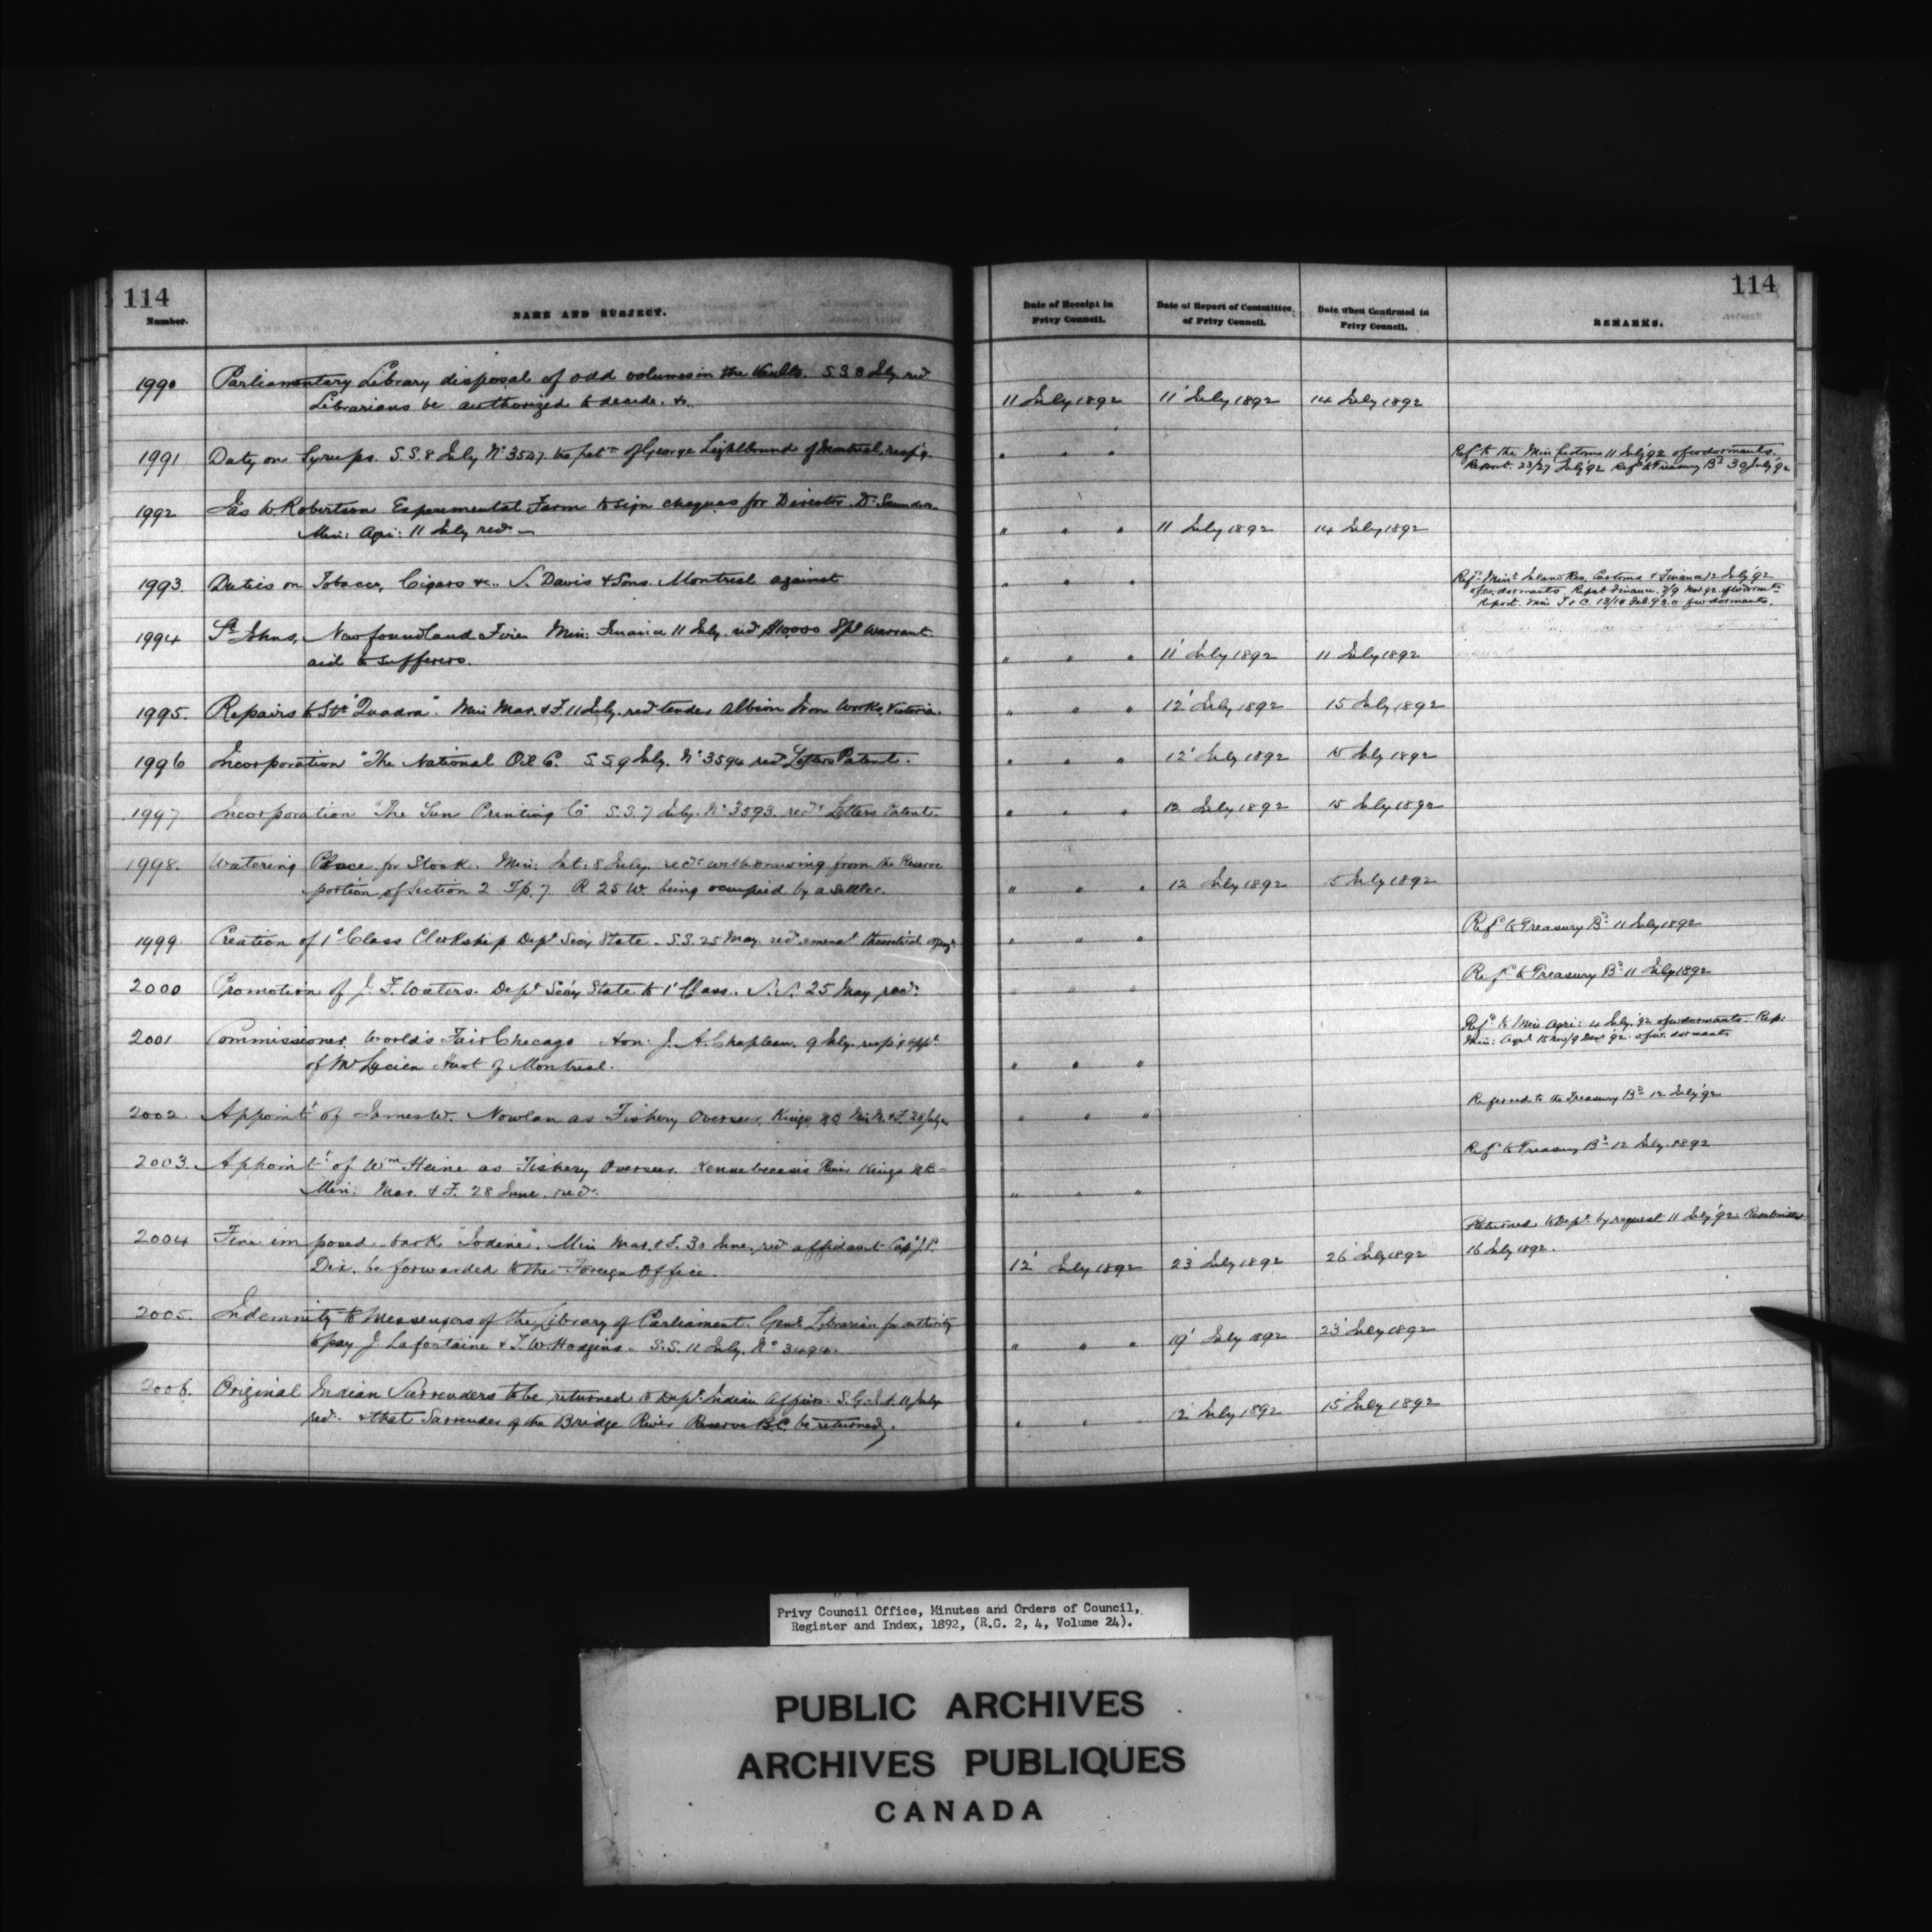 114
Number.
NAME AND SUBJECT.
Date of Receipt in
Privy Council.
Date of Report of Committee
of Privy Council.
Date when Confirmed in
Privy Council.
REMARKS.
114
1990 Parliamentary Library disposal of odd volumes in the Vaults. S.S. 8 July recd
Librarians be authorized to decide. &c. 11 July 1892 11 July 1892 14 July 1892
1991 Duty on Syrups. S.S. 8 July No 3547 of George Lightbound of Montreal respg. " " " Refd to the Min Customs 11 July '92
Report 23/27 July '92 Refd to Treasury Bd 30 July '92
1992 Jas W Robertson Experimental Farm to sign cheques for Director Dr Saunders
Min: Agri: 11 July recd " " " 11 July 1892 14 July 1892
1993. Duties on Tobacco, Cigars &c. S. Davis & Sons. Montreal against " " " Refd Mins Inland Rev. Customs & Finance 12 July '92
Report Finance
Report Min T & C.
1994 St Johns, Newfoundland Fire Min: Finance 11 July. recd $10,000 Spl Warrant
aid to sufferers. " " " 11 July 1892 11 July 1892
1995. Repairs to Str "Quadra". Min Mar. & F. 11 July. recd tender Albion Iron Works, Victoria. " " " 12 July 1892 15 July 1892
1996 Incorporation "The National Oil Co. S.S. 9 July. No 3594 recd Letters Patent. " " " 12 July 1892 15 July 1892
1997 Incorporation "The Sun Printing Co" S.S. 7 July. No 3593. recd Letters Patent. " " " 12 July 1892 15 July 1892
1998. Watering Place for Stock. Min: Int: 8 July. recd withdrawing from the Reserve
portion of Section 2 Tp. 7 R 25 W. being occupied by a settler. " " " 12 July 1892 15 July 1892
1999. Creation of 1st Class Clerkship Dept Secy State. S.S. 25 May. recd " " " Refd to Treasury Bd 11 July 1892
2000 Promotion of J. F. Waters. Dept Secy State to 1st Class. S.S. 25 May recd. " " " Refd to Treasury Bd 11 July 1892
2001 Commissioner. World's Fair Chicago Hon: J. A. Chapleau. 9 July. respg appt
of Mr Lucien Huot of Montreal. " " " Refd to Min Agri: 4 July. '92
2002. Appointt of James W. Nowlan as Fishery Overseer, Kings NB Min M. & F. " " " Referred to the Treasury Bd 12 July '92
2003. Appointt of Wm Heine as Fishery Overseer. Kennebecasis River Kings NB
Min: Mar. & F. 28 June. recd. " " " Refd to Treasury Bd 12 July 1892
2004 Fine imposed bark "Iodine". Min Mar. & F. 30 June. recd affidavit Capt J. P.
Dix. be forwarded to the Foreign Office. 12 July 1892 23 July 1892 26 July 1892 Returned to Dept by request 11 July '92 Resubmitted
16 July 1892.
2005. Indemnity to Messengers of the Library of Parliament. Genl Librarian for authority
to pay J. Lafontaine & T. W. Hodgins. S.S. 11 July. No 3494. " " " 19 July 1892 23 July 1892
2006. Original Indian Surrenders to be returned to Dept. Indian Affairs. S.G.I.A. 11 July
recd. that Surrender of the Bridge River Reserve B.C. be returned. " " " 12 July 1892 15 July 1892
Privy Council Office, Minutes and Orders of Council,
Register and Index, 1892, (R.G. 2, 4, Volume 24).
PUBLIC ARCHIVES
ARCHIVES PUBLIQUES
CANADA